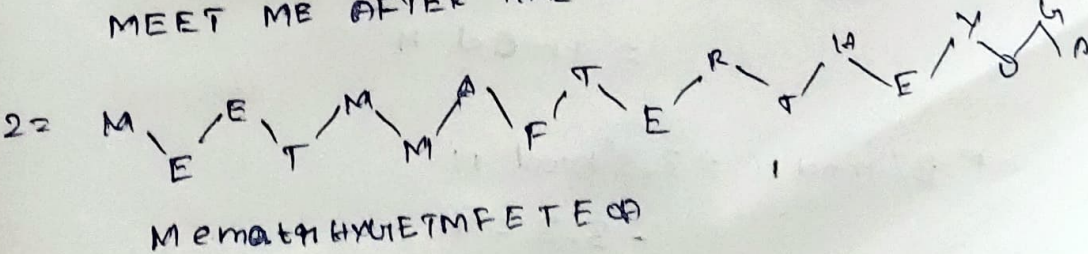 MEET ME AFTER
2= M E E T M M A F T E R T H E Y O G A
MematrHYGETMFETEOA